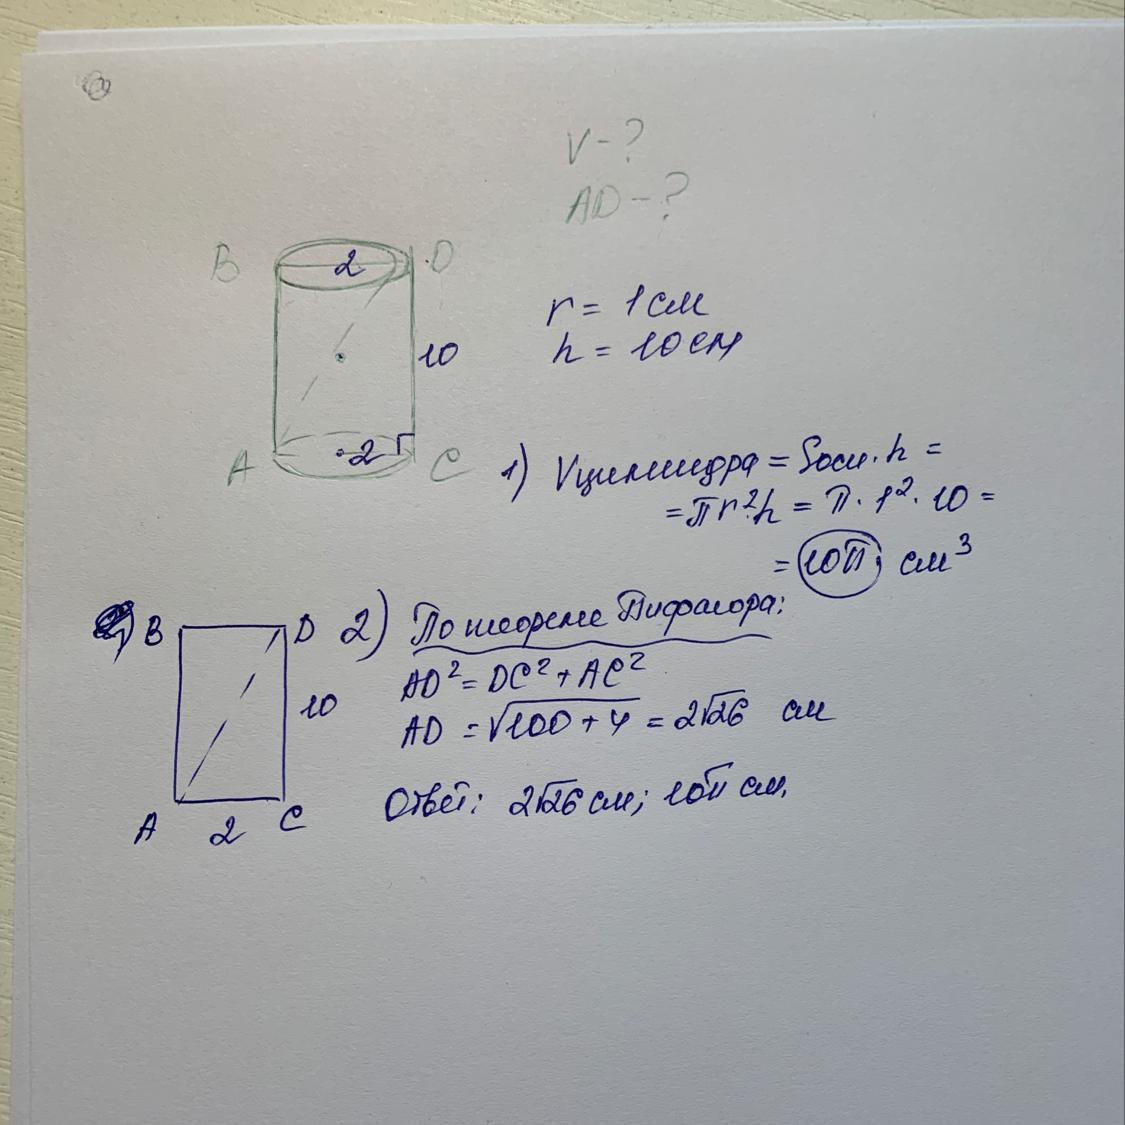 V - ?
AD - ?
B 2 D
r = 1 см
h = 10 см
10
A 2 C
1) Vцилиндра = Sосн. h =
= πr²h = π · 1² · 10 =
= 10π см³
B D
2) По теореме Пифагора:
AD² = DC² + AC²
10
AD = √100 + 4 = 2√26 см
Ответ: 2√26 см; 10π см.
A 2 C